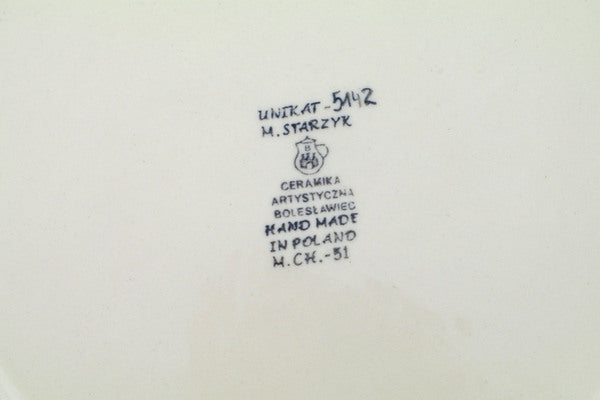 UNIKAT-5142
M. STARZYK
B
CERAMIKA
ARTYSTYCZNA
BOLESŁAWIEC
HAND MADE
IN POLAND
M.CH.-51